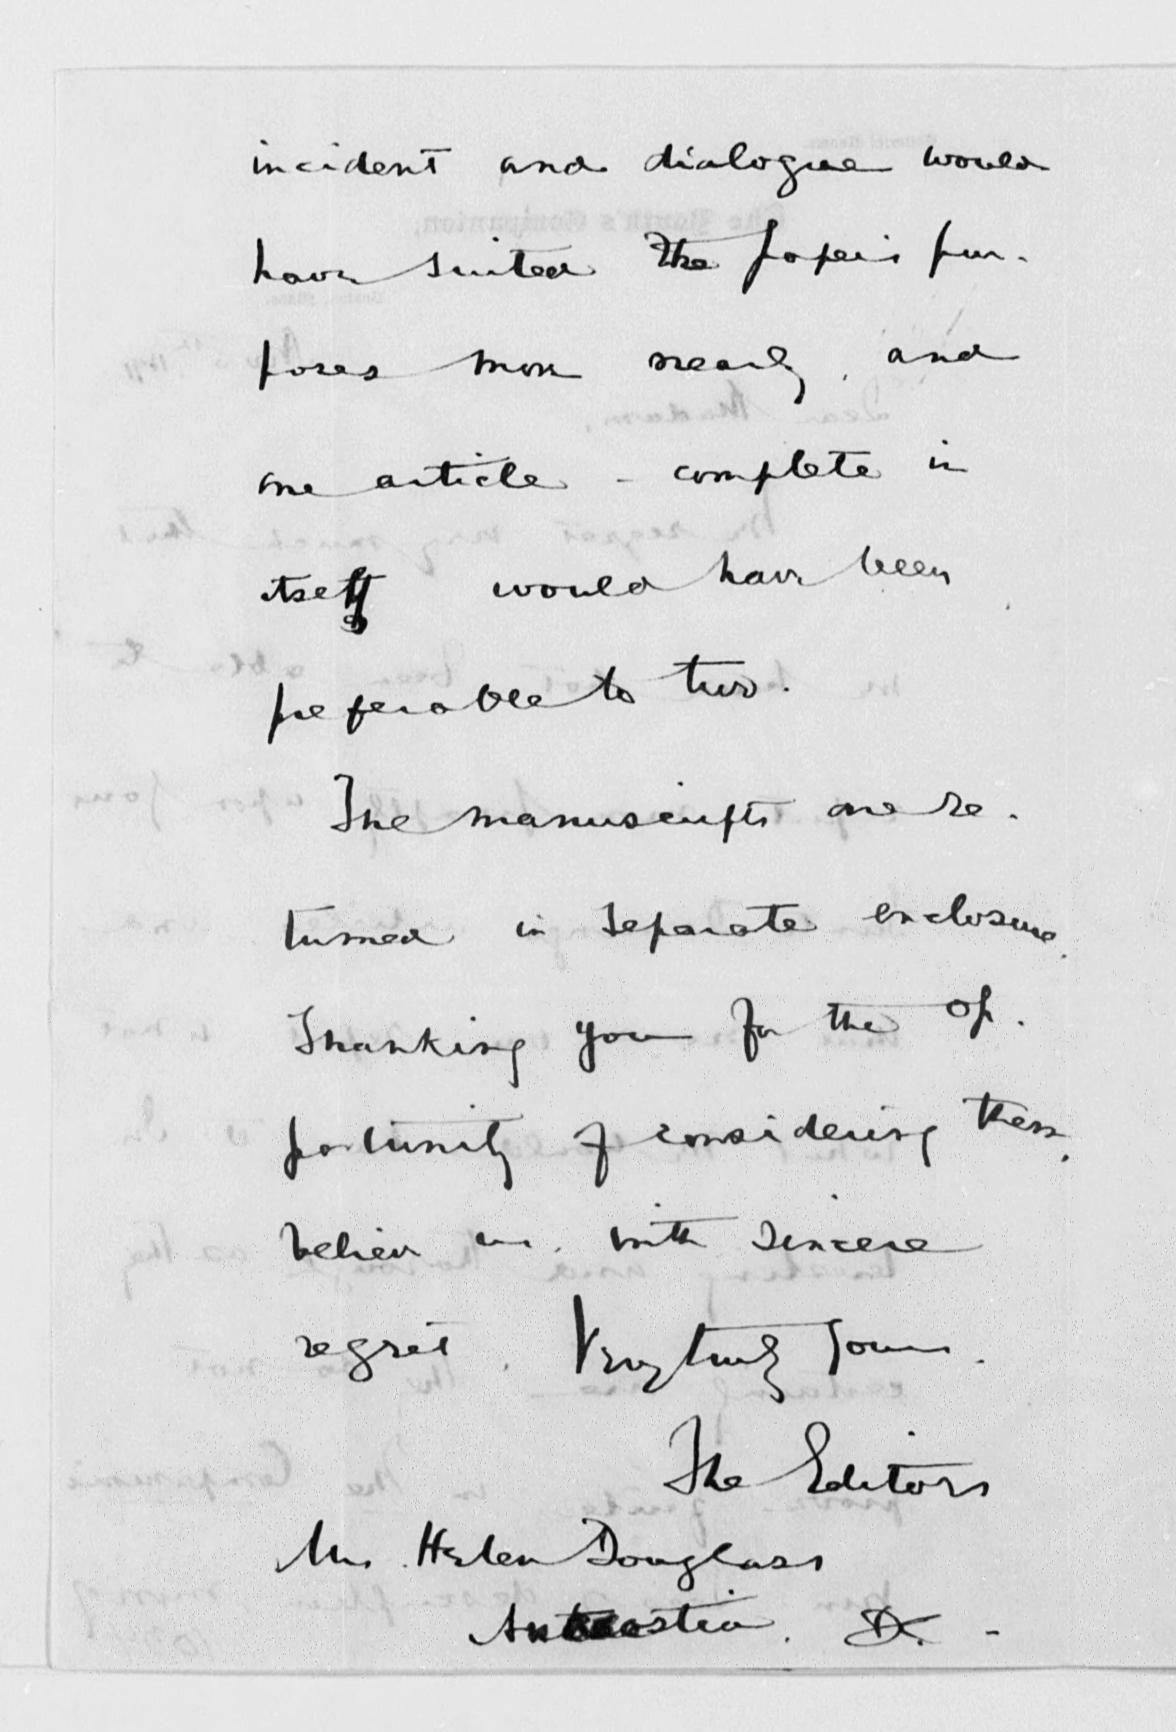 incident and dialogue would
have suited the paper's pur-
poses more nearly, and
one article - complete in
itself would have been
preferable to two.
The manuscripts are re-
turned in separate enclosure.
Thanking you for the op-
portunity of considering them,
believe us, with sincere
regret, Very truly yours.
The Editors
Mrs. Helen Douglass
Anacostia. D.C. -